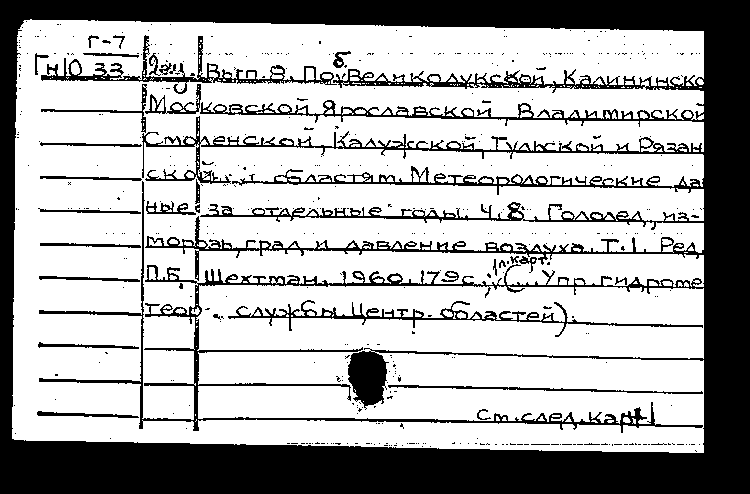 Г-7
Гн10 33 Вып. 8. По Великолукской, Калининско
Московской, Ярославской, Владимирской
Смоленской, Калужской, Тульской и Рязан
ской областям. Метеорологические дан
ные за отдельные годы. Ч. 8. Гололед, из-
морозь, град и давление воздуха. Т. 1. Ред.
П.Б. Шехтман. 1960. 179 с.; 1 л. карт. (Упр. гидроме
теор. службы Центр. областей).
См. след. карт